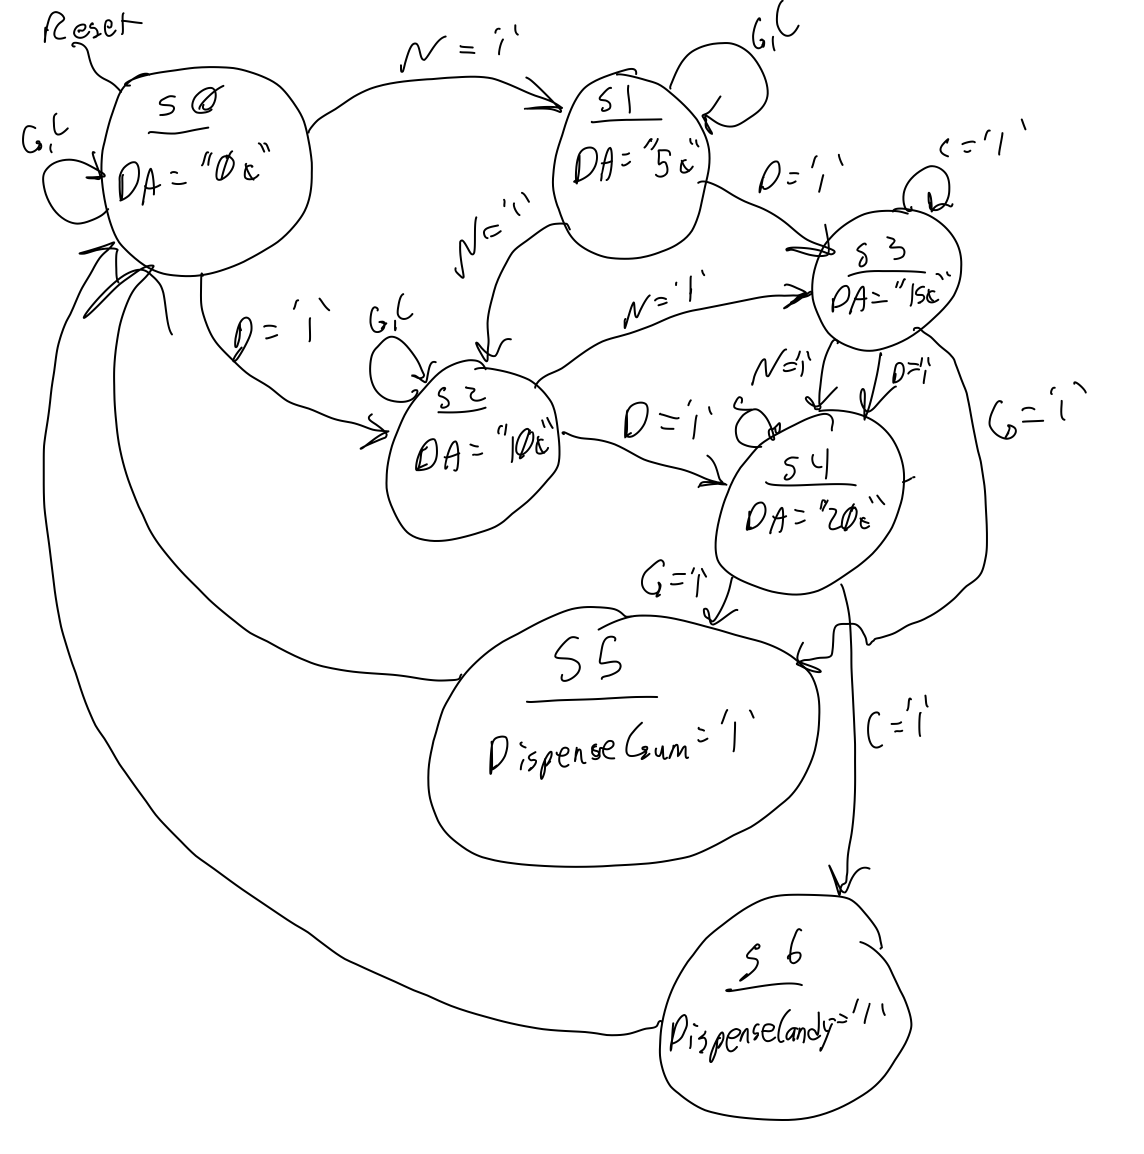 Reset
N = '1'
G,C
S0
DA = "0¢"
G,C
S1
DA = "5¢"
D = '1'
C = '1'
N = '1'
S3
DA = "15¢"
N = '1'
D = '1'
G,C
S2
DA = "10¢"
N = '1'
D = '1'
G = '1'
D = '1'
S4
DA = "20¢"
G = '1'
S5
DispenseGum = '1'
C = '1'
S6
DispenseCandy = '1'